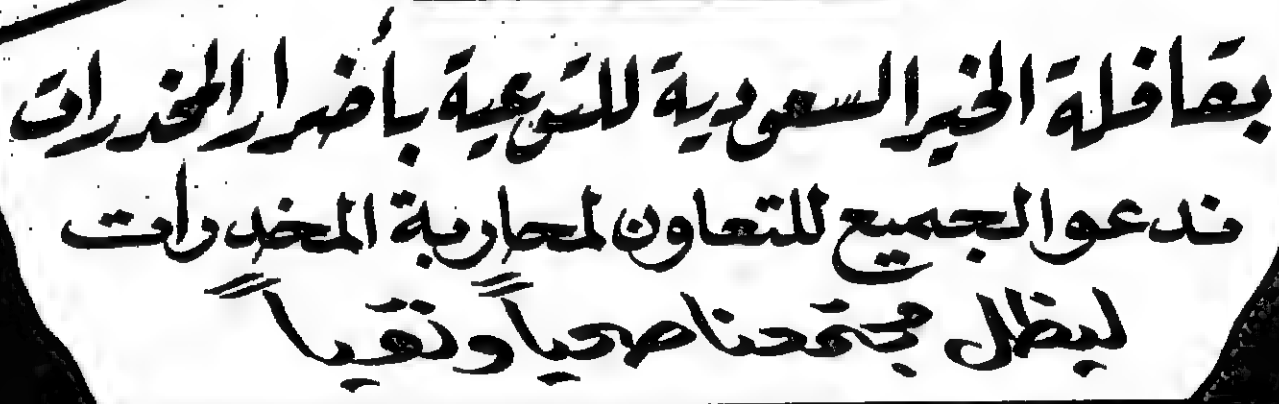 بقافلة الخير السعودية للتوعية بأضرار المخدرات
ندعو الجميع للتعاون لمحاربة المخدرات
ليظل مجتمعنا صحياً ونقياً